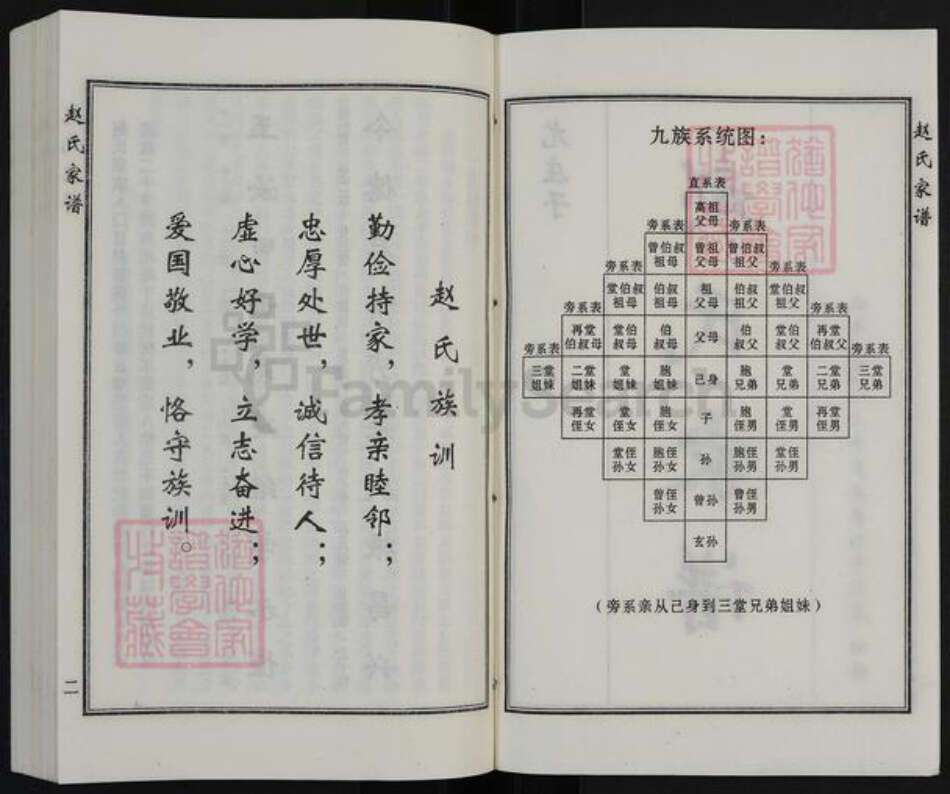 赵氏家谱
九族系统图：
直系表
高祖父母
旁系表 旁系表
曾伯叔祖母 曾祖父母 曾伯叔祖父
旁系表 旁系表
堂伯叔祖母 伯叔祖母 祖父母 伯叔祖父 堂伯叔祖父
旁系表 旁系表
再堂伯叔母 堂伯叔母 伯叔母 父母 伯叔父 堂伯叔父 再堂伯叔父
旁系表 旁系表
三堂姐妹 二堂姐妹 堂姐妹 胞姐妹 己身 胞兄弟 堂兄弟 二堂兄弟 三堂兄弟
再堂侄女 堂侄女 胞侄女 子 胞侄男 堂侄男 再堂侄男
堂侄孙女 胞侄孙女 孙 胞侄孙男 堂侄孙男
曾侄孙女 曾孙 曾侄孙男
玄孙
（旁系亲从己身到三堂兄弟姐妹）
赵氏族训
勤俭持家，孝亲睦邻；
忠厚处世，诚信待人；
虚心好学，立志奋进；
爱国敬业，恪守族训。
赵氏家谱
二
FamilySearch